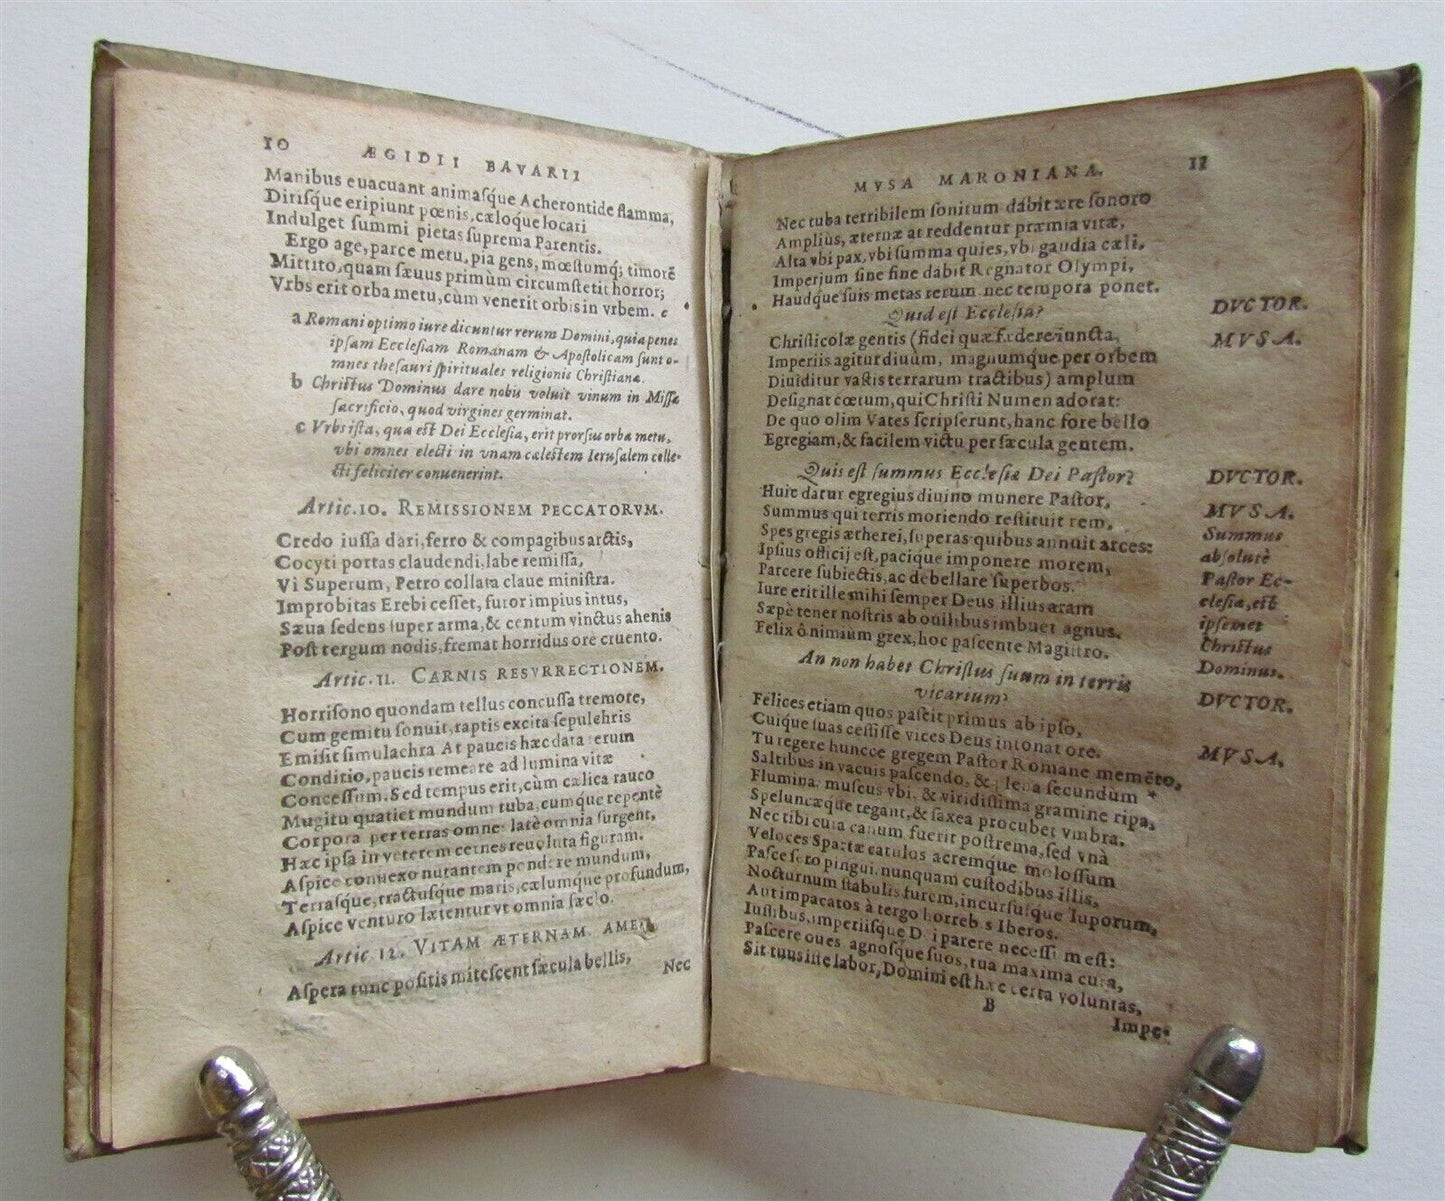 10 ÆGIDII BAVARII
Manibus euacuant animaſque Acherontide flamma,
Diriſque eripiunt pœnis, cæloque locari
Indulget ſummi pietas ſuprema Parentis.
Ergo age, parce metu, pia gens, mœſtumq; timorē
Mittito, quam ſæuus primùm circumſtetit horror;
Vrbs erit orba metu, cùm venerit orbis in vrbem. c
a Romani optimo iure dicuntur rerum Domini, quia penes
ipſam Eccleſiam Romanam & Apoſtolicam ſunt o-
mnes theſauri ſpirituales religionis Chriſtianæ.
b Chriſtus Dominus dare nobis voluit vinum in Miſſæ
ſacrificio, quod virgines germinat.
c Vrbs iſta, quæ eſt Dei Eccleſia, erit prorſus orba metu,
vbi omnes electi in vnam cæleſtem Ieruſalem colle-
cti feliciter conuenerint.
Artic. 10. REMISSIONEM PECCATORVM.
Credo iuſſa dari, ferro & compagibus arctis,
Cocyti portas claudendi, labe remiſſa,
Vi Superum, Petro collata claue miniſtra.
Improbitas Erebi ceſſet, furor impius intus,
Sæua ſedens ſuper arma, & centum vinctus ahenis
Poſt tergum nodis, fremat horridus ore cruento.
Artic. 11. CARNIS RESVRRECTIONEM.
Horriſono quondam tellus concuſſa tremore,
Cum gemitu ſonuit, raptis excita ſepulchris
Emiſit ſimulachra At paucis hæc data rerum
Conditio, paucis remeare ad lumina vitæ
Conceſſum. Sed tempus erit, cùm cælica rauco
Mugitu quatiet mundum tuba, cumque repentè
Corpora per terras omnes latè omnia ſurgent,
Hæc ipſa in veterem cernes reuoluta figuram.
Aſpice conuexo nutantem pondere mundum,
Terraſque, tractuſque maris, cælumque profundum,
Aſpice venturo lætentur vt omnia ſæclo.
Artic 12. VITAM ÆTERNAM. AMEN
Aſpera tunc poſitis miteſcent ſæcula bellis,
Nec
MVSA MARONIANA. 11
Nec tuba terribilem ſonitum dabit ære ſonoro
Amplius, æternæ at reddentur præmia vitæ,
Alta vbi pax, vbi ſumma quies, vbi gaudia cæli,
Imperium ſine fine dabit Regnator Olympi,
Haudque ſuis metas rerum nec tempora ponet.
Quid eſt Eccleſia? DVCTOR.
Chriſticolæ gentis (fidei quæ fœdere iuncta, MVSA.
Imperiis agitur diuûm, magnumque per orbem
Diuiditur vaſtis terrarum tractibus) amplum
Deſignat cœtum, qui Chriſti Numen adorat:
De quo olim Vates ſcripſerunt, hanc fore bello
Egregiam, & facilem victu per ſæcula gentem.
Quis eſt ſummus Eccleſiæ Dei Paſtor? DVCTOR.
Huic datur egregius diuino munere Paſtor, MVSA.
Summus qui terris moriendo reſtituit rem, Summus
Spes gregis ætherei, ſuperas quibus annuit arces: abſolutè
Ipſius officij eſt, pacique imponere morem, Paſtor Ec-
Parcere ſubiectis, ac debellare ſuperbos. cleſiæ, eſt
Iure erit ille mihi ſemper Deus illius aram ipſemet
Sæpè tener noſtris ab ouilibus imbuet agnus. Chriſtus
Felix ô nimium grex, hoc paſcente Magiſtro. Dominus.
An non habet Chriſtus ſuum in terris
vicarium? DVCTOR.
Felices etiam quos paſcit primus ab ipſo,
Cuique ſuas ceſſiſſe vices Deus intonat ore. MVSA.
Tu regere huncce gregem Paſtor Romane memēto,
Saltibus in vacuis paſcendo, & plena ſecundùm *
Flumina: muſcus vbi, & viridiſſima gramine ripa,
Speluncæque tegant, & ſaxea procubet vmbra.
Nec tibi cura canum fuerit poſtrema, ſed vnà
Veloces Spartæ catulos acremque moloſſum
Paſce ſero pingui. nunquam cuſtodibus illis,
Nocturnum ſtabulis furem, incurſuſque luporum,
Aut impacatos à tergo horrebis Iberos.
Iuſſibus, imperiiſque Dei parere neceſſum eſt:
Paſcere oues, agnoſque ſuos, tua maxima cura,
Sit tuus iſte labor, Domini eſt hæc certa voluntas,
B
Impe-